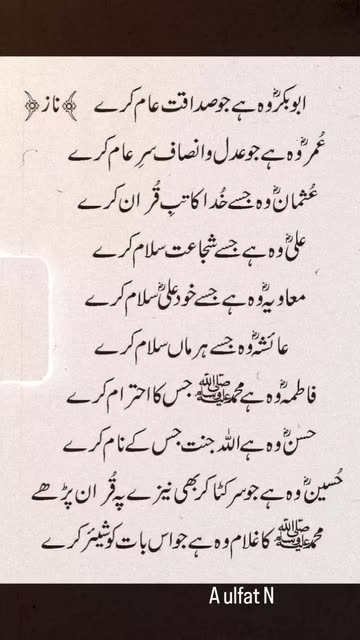 ابوبکرؓ وہ ہے جو صداقت عام کرے ﴿ناز﴾
عُمرؓ وہ ہے جو عدل و انصاف سرِ عام کرے
عُثمانؓ وہ جسے خُدا کاتبِ قُران کرے
علیؓ وہ ہے جسے شجاعت سلام کرے
معاویہؓ وہ ہے جسے خود علیؓ سلام کرے
عائشہؓ وہ جسے ہر ماں سلام کرے
فاطمہؓ وہ ہے محمدﷺ جس کا احترام کرے
حسنؓ وہ ہے اللہ جنت جس کے نام کرے
حُسینؓ وہ ہے جو سر کٹا کر بھی نیزے پہ قُران پڑھے
محمدﷺ کا غلام وہ ہے جو اس بات کو شیئر کرے
A ulfat N